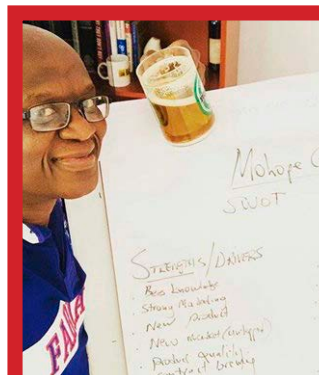 Mohope
SWOT
STRENGTHS/DRIVERS
Beer knowledge
Strong Marketing
New Product
New market
Product quality
contract brewing